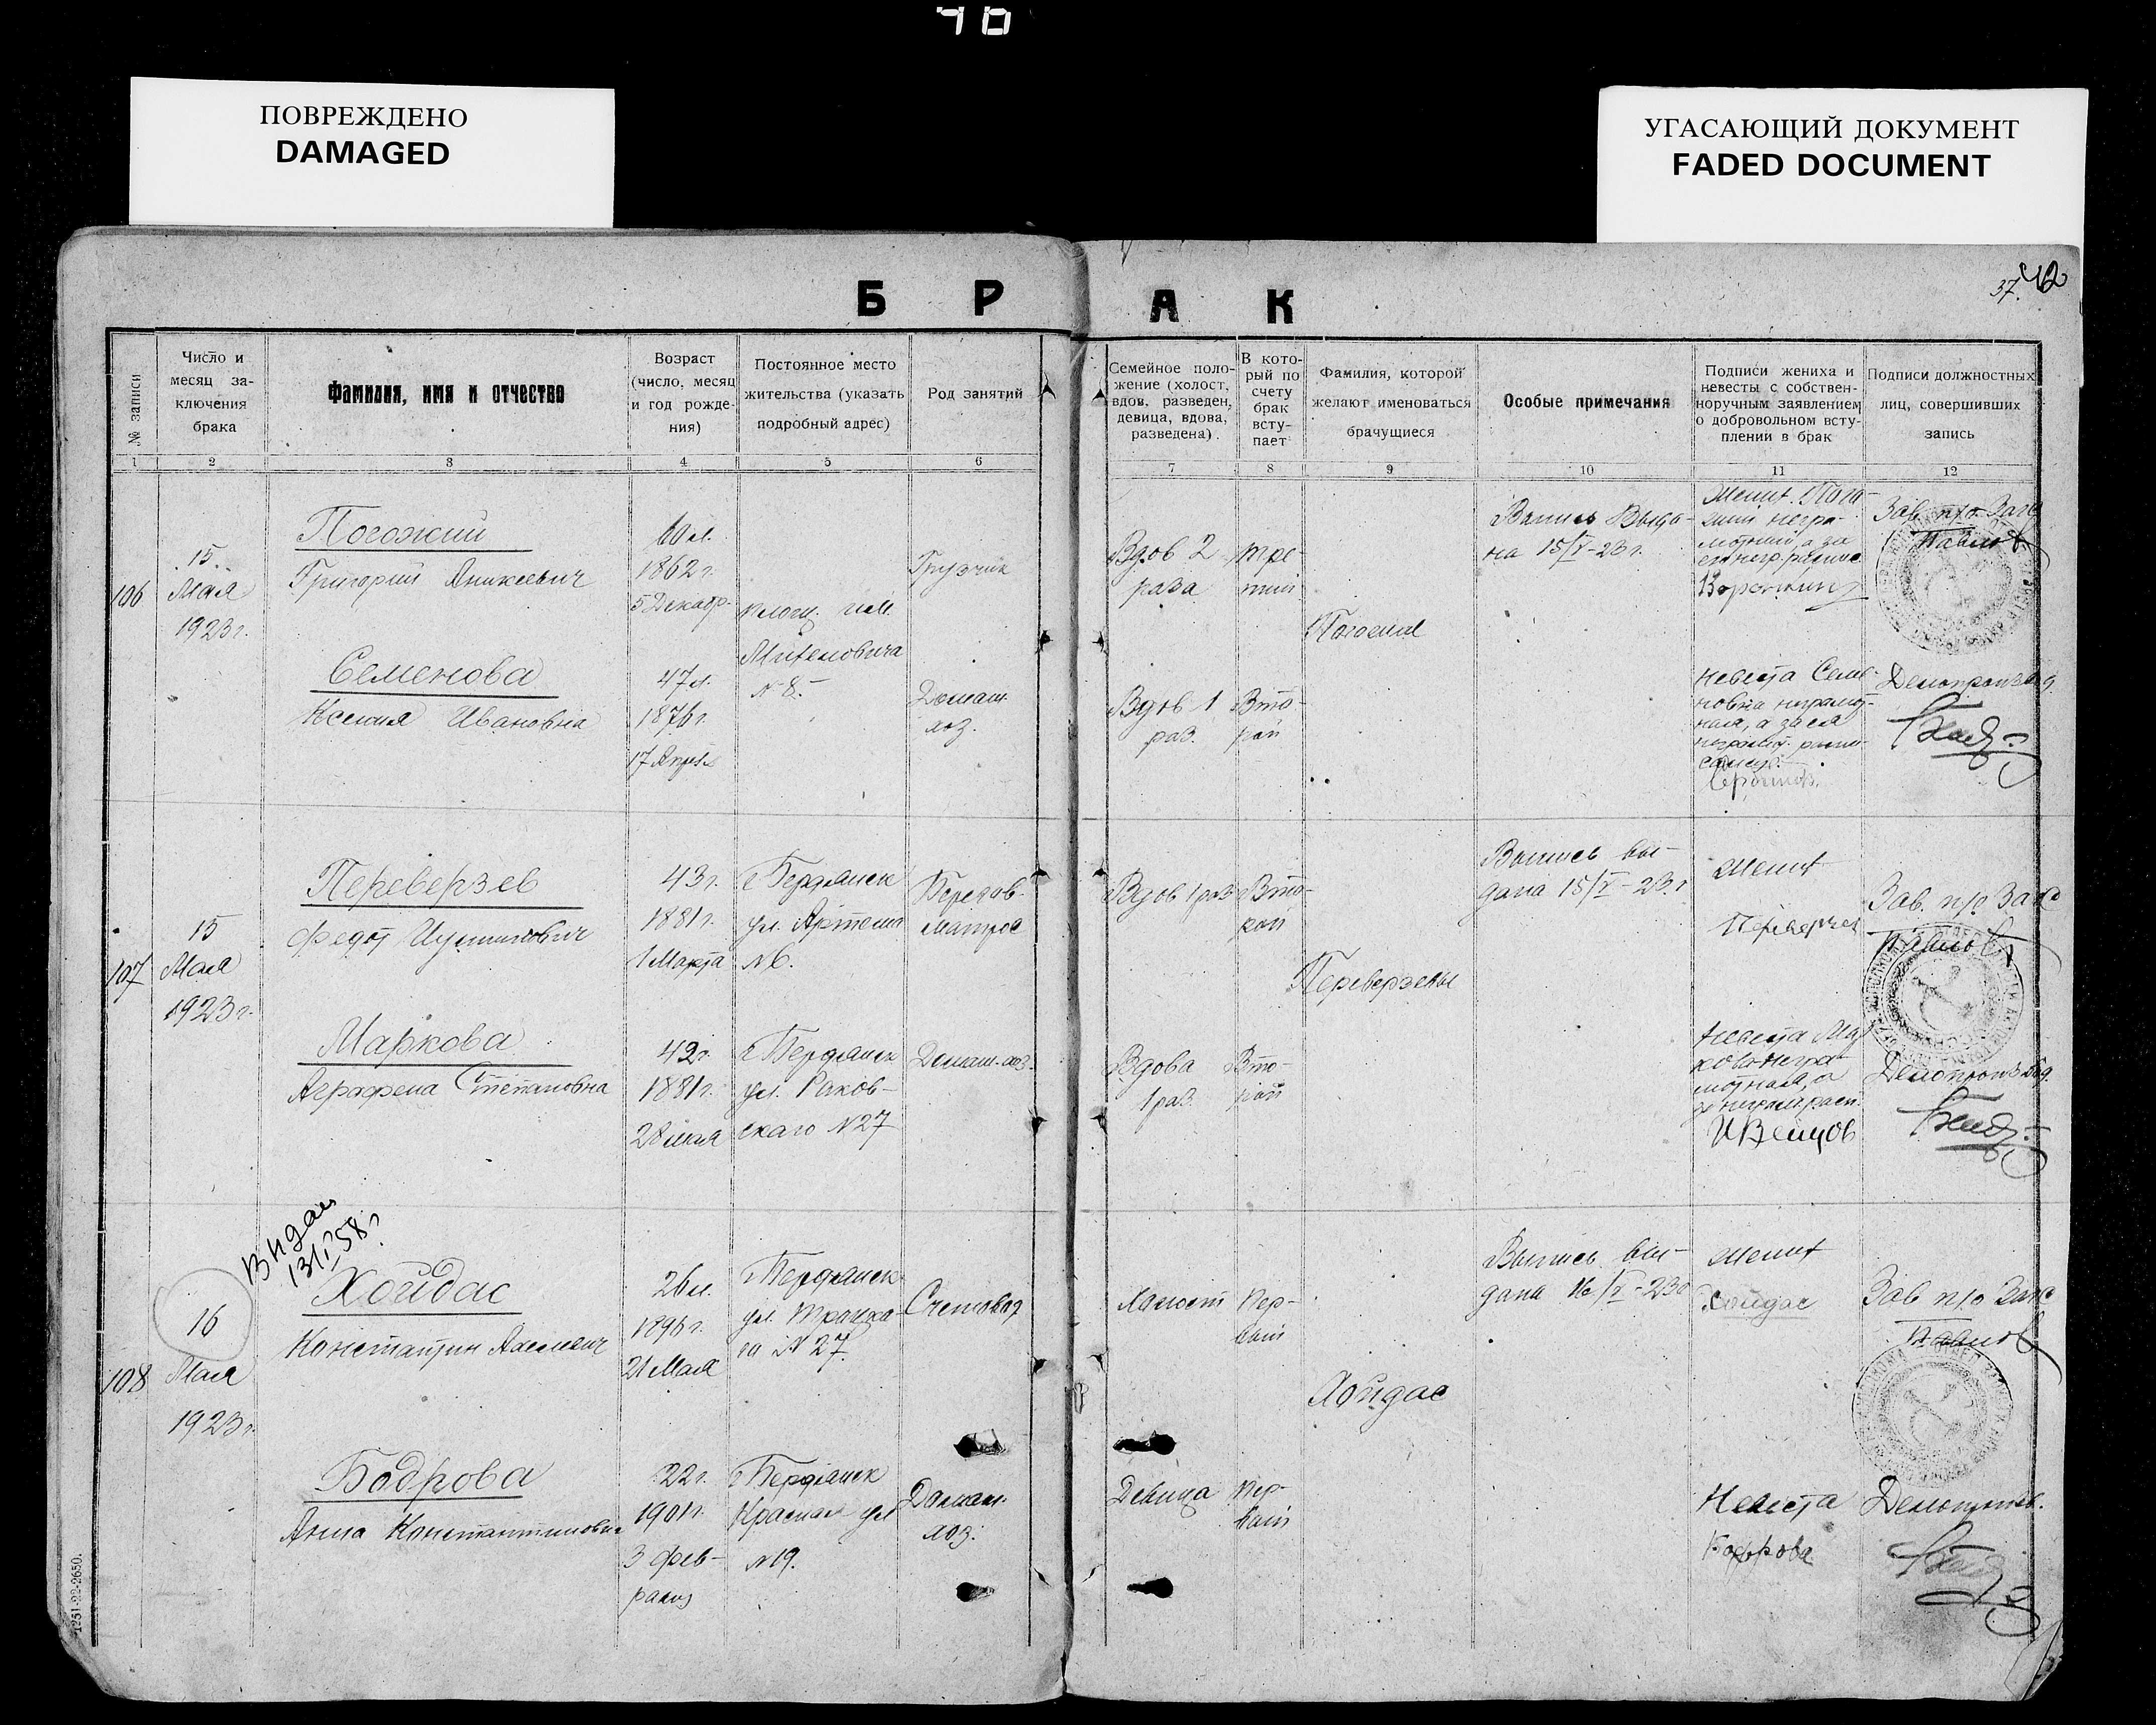 ПОВРЕЖДЕНО
DAMAGED
УГАСАЮЩИЙ ДОКУМЕНТ
FADED DOCUMENT
37.
42
БРАК
№ записи
Число и
месяц за-
ключения
брака
Фамилия, имя и отчество
Возраст
(число, месяц
и год рожде-
ния)
Постоянное место
жительства (указать
подробный адрес)
Род занятий
Семейное поло-
жение (холост,
вдов, разведен,
девица, вдова,
разведена).
В кото-
рый по
счету
брак
всту-
пает
Фамилия, которой
желают именоваться
брачущиеся
Особые примечания
Подписи жениха и
невесты с собствен-
норучным заявлением
о добровольном всту-
плении в брак
Подписи должностных
лиц, совершивших
запись
1 2 3 4 5 6 7 8 9 10 11 12
106
15
Мая
1923 г.
Погожий
Григорий Аникеевич
60 л.
1862 г.
5 Декабр.
площ. им.
N 8.
Грузчик
Вдов 2
раза
Тре-
тий
Выпись Выда-
на 15/V-23 г.
Жених
Зав. п/о Загс
Павлов
Семенова
Ксения Ивановна
47 л.
1876 г.
17 Апреля
Домаш.
хоз.
Вдов 1
раз.
Вто-
рой
Невеста Семе-
Делопроизвод.
107
15
Мая
1923 г.
Переверзев
Федот
43 г.
1881 г.
1 Марта
г Бердянск
ул. Артема
N 6.
матрос
Вдов 1 раз
Вто-
рой
Переверзевы
Выпись вы-
дана 15/V-23 г
Жених
Переверзев
Зав. п/о Загс
Павлов
Маркова
Аграфена Степановна
42 г.
1881 г.
28 мая
г Бердянск
ул. Раков-
скаго N 27
Домаш. хоз.
Вдова
1 раз.
Вто-
рой
Невеста Мар
кова негра-
мотная, а
Делопроизвод.
108
Выдан
16
Мая
1923 г.
Хойдас
Константин
26 л.
1896 г.
21 Мая
г Бердянск
ул.
N 27.
Счетовод
Холост
Пер-
вый
Хойдас
Выпись вы-
дана 16/V-23 г
Жених
Хойдас
Зав п/о Загс
Павлов
Бодрова
Анна Константиновна
22 г.
1901 г.
3 фев-
раля
г Бердянск
Красная ул
N 19.
Домаш.
хоз.
Девица
Пер-
вый
Невеста
Бодрова
Делопроизв.
1251-22-2650.